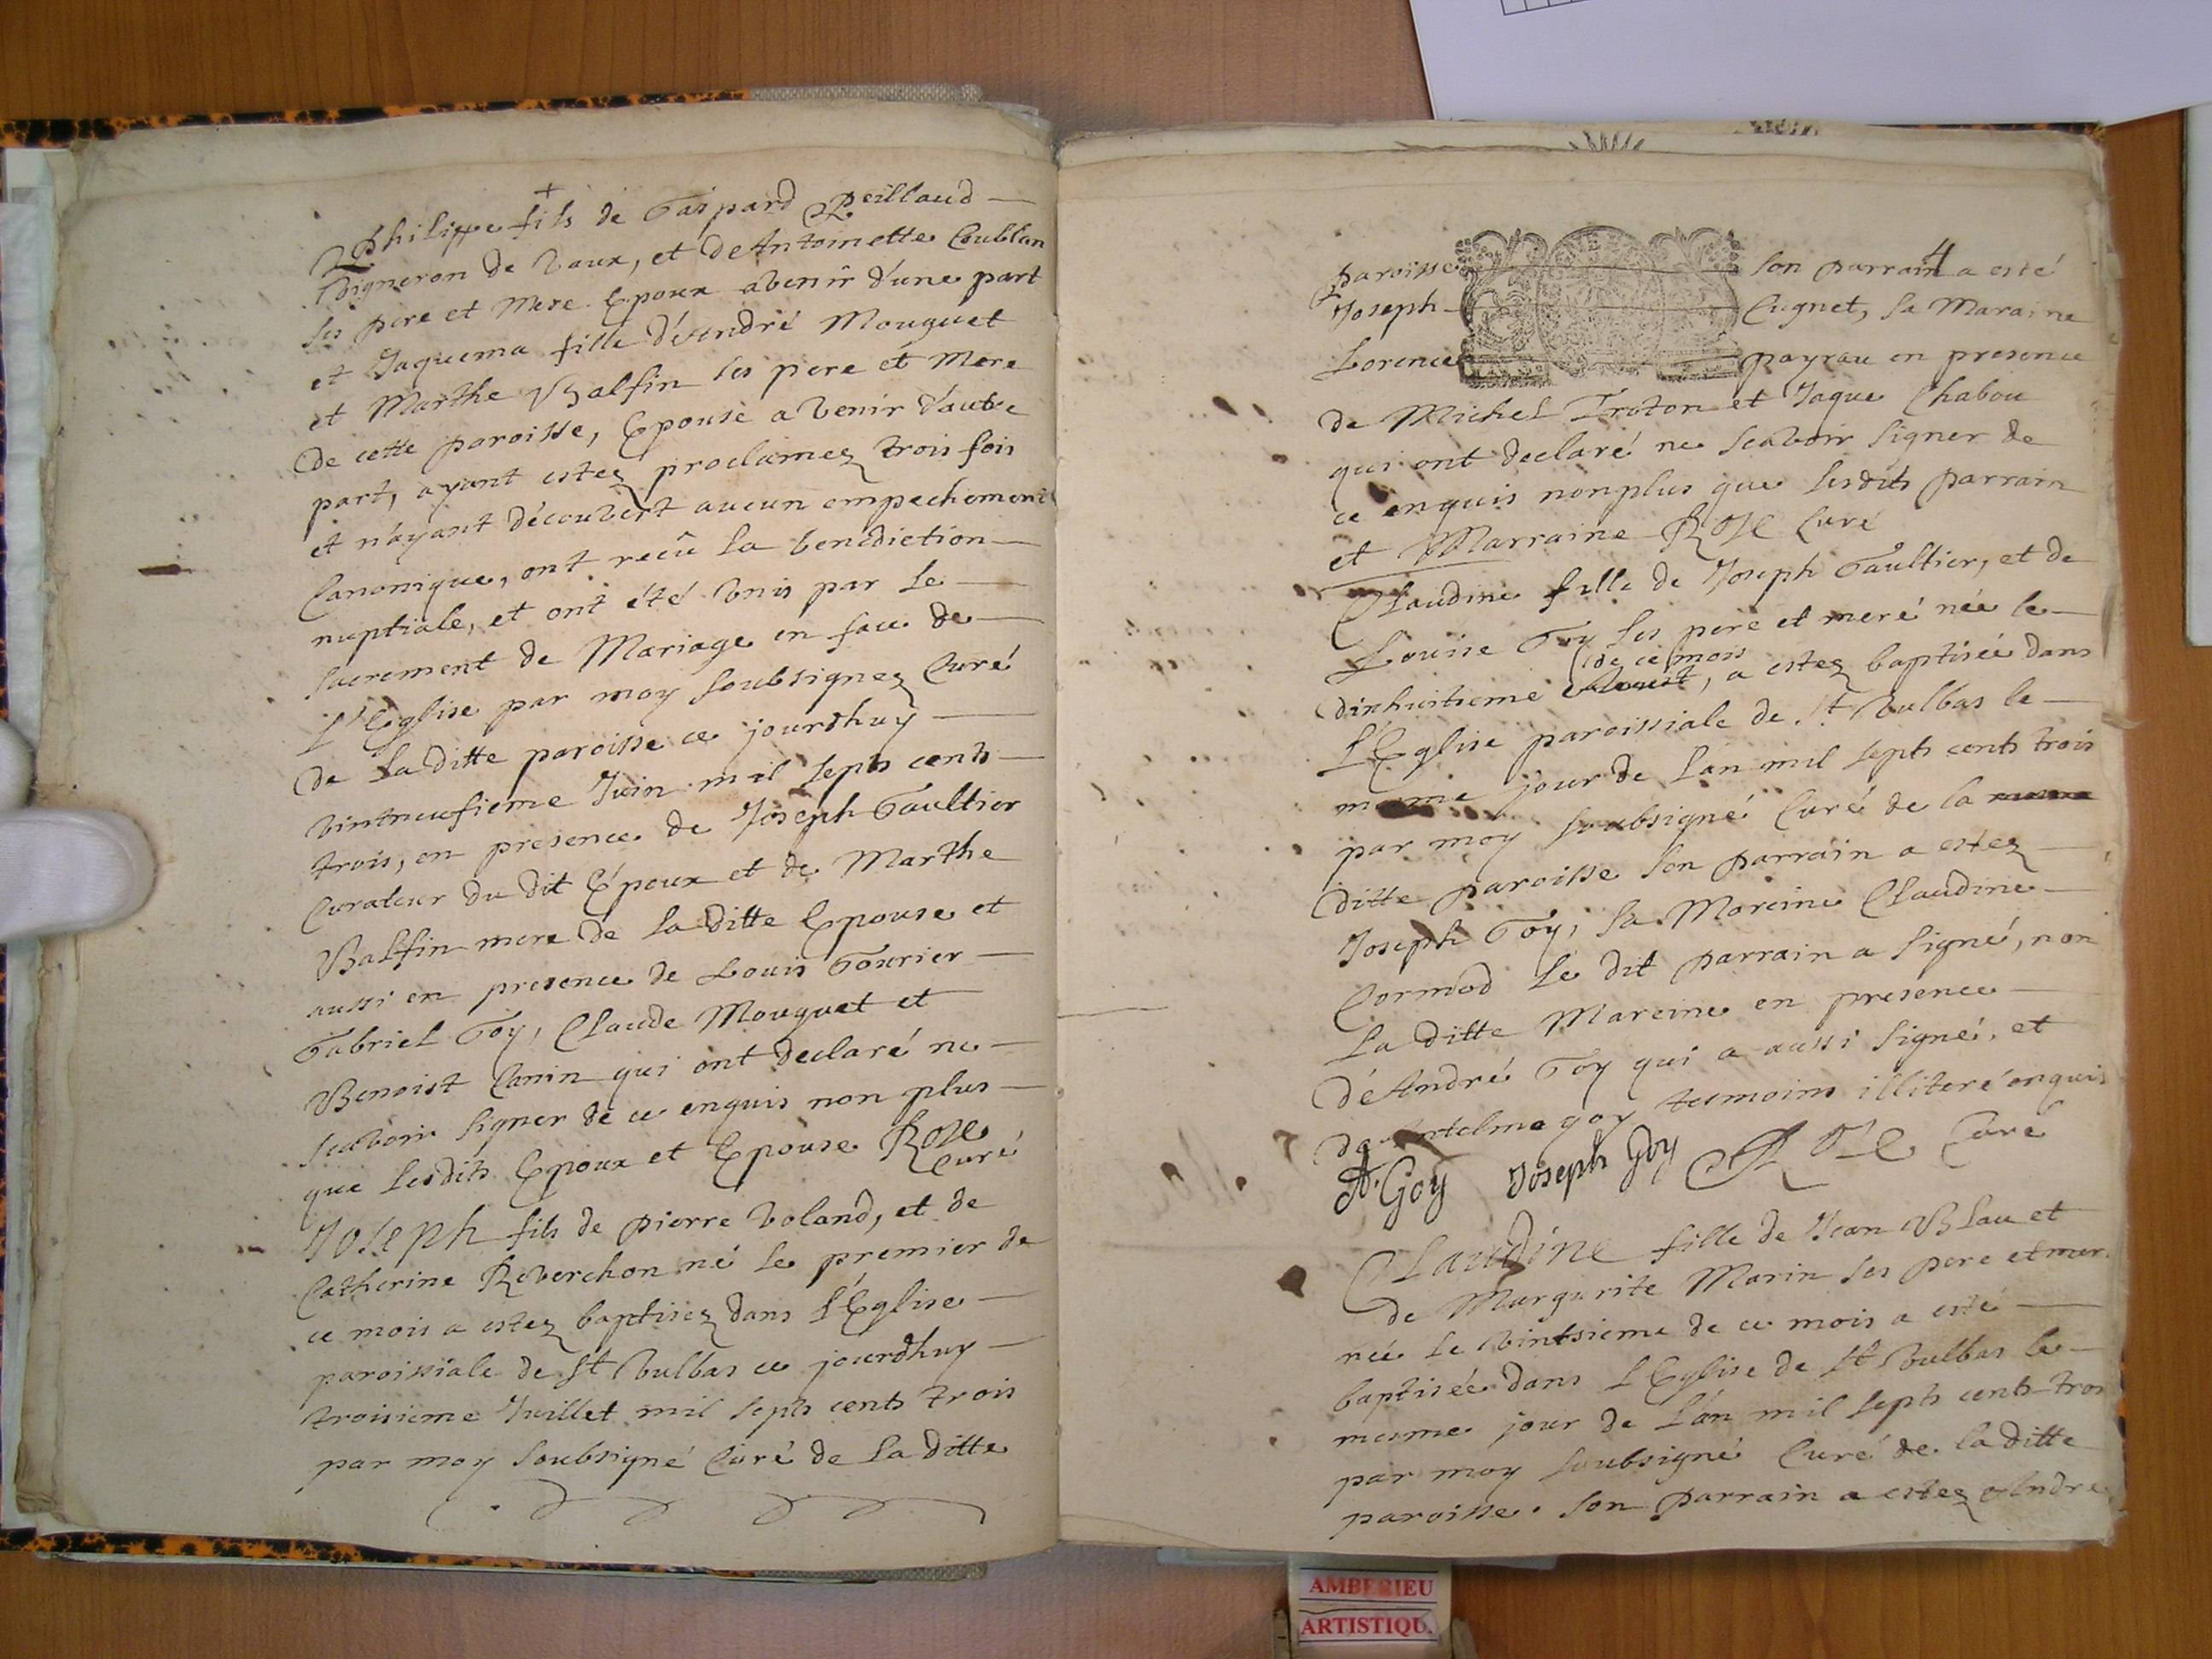 Philippe fils de Gaspard Peillaud
Vigneron de Vaux, et de Antoinette Coublan
ses pere et Mere Epoux avenir d'une part
et Jaquema fille d'André Mouguet
et Marthe Balfin ses pere et Mere
de cette paroisse, Epouse a venir d'autre
part, ayant estez proclamez trois fois
et n'ayant découvert aucun empechement
Canonique, ont recû la benediction
nuptiale, et ont été Unis par le
sacrement de Mariage en face de
l'Eglise par moy soubsignez Curé
de la ditte paroisse ce jourdhuy
vintneufieme Juin mil septs cents
trois, en presence de Joseph Gaultier
Curateur du dit Epoux et de Marthe
Balfin mere de la ditte Epouse et
aussi en presence de Louis Gourier
Gabriel Goy, Claude Mouguet et
Benoist Canin qui ont declaré ne
scavoir signer de ce enquis non plus
que lesdits Epoux et Epouse Rose
Curé
Joseph fils de pierre Voland, et de
Catherine Reverchon né le premier de
ce mois a estez baptisez dans l'Eglise
paroissiale de St Vulbas ce jourdhuy
troisieme Juillet mil septs cents trois
par moy soubsigné Curé de la ditte
4
paroisse son parrain a esté
Joseph Cugnet, sa Maraine
Lorence payrau en presence
de Michel Troton et Jaque Chabou
qui ont declaré ne scavoir signer de
ce enquis nonplus que lesdits parrain
et Marraine Rose Curé
Claudine fille de Joseph Gaultier, et de
Louise Goy ses pere et meré née le
de ce mois
dixhuitieme, a estez baptisée dans
l'Eglise paroissiale de St Vulbas le
mesme jour de l'an mil septs cents trois
par moy soubsigné Curé de la
ditte paroisse son parrain a estez
Joseph Goy, sa Mareine Claudine
Cormod le dit parrain a signé, non
la ditte Mareine en presence
d'André Goy qui a aussi signé, et
de Antelme goy tesmoins illiteré enquis
A. Goy Joseph Goy Rose Curé
Claudine fille de Jean Blau et
de Margurite Marin ses pere et mer
née le vintsieme de ce mois a esté
baptisée dans l'Eglise de St Vulbas le
mesme jour de l'an mil septs cents trois
par moy soubsigné Curé de la ditte
paroisse. son parrain a estez Andre
AMBERIEU
ARTISTIQU.